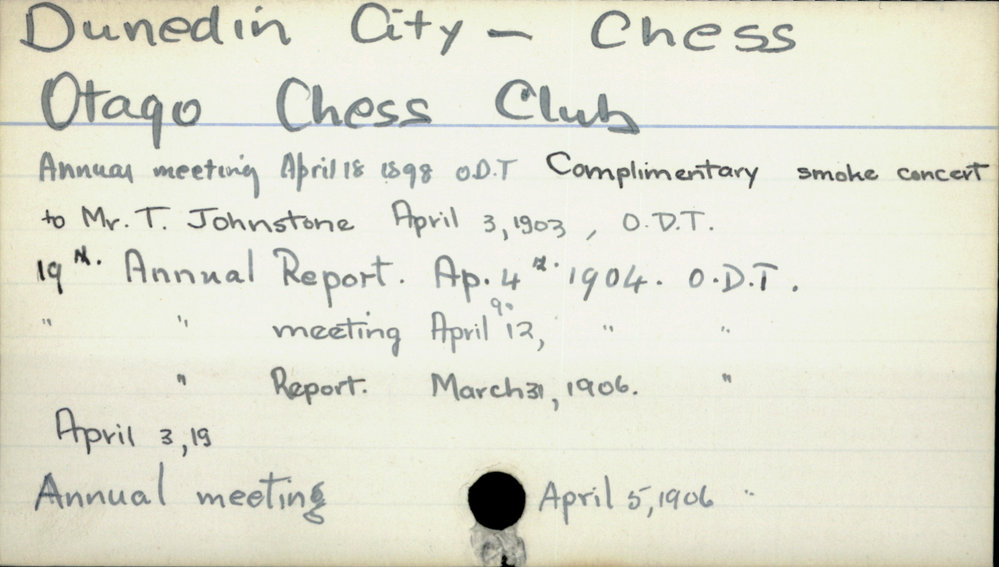 Dunedin City – Chess
Otago Chess Club
Annual meeting April 18 1898 O.D.T Complimentary smoke concert
to Mr. T. Johnstone April 3, 1903, O.D.T.
19th. Annual Report. Ap. 4th. 1904. O.D.T.
" " meeting April 9. 12, " "
" Report. March 31, 1906. "
April 3, 19
Annual meeting April 5, 1906 "